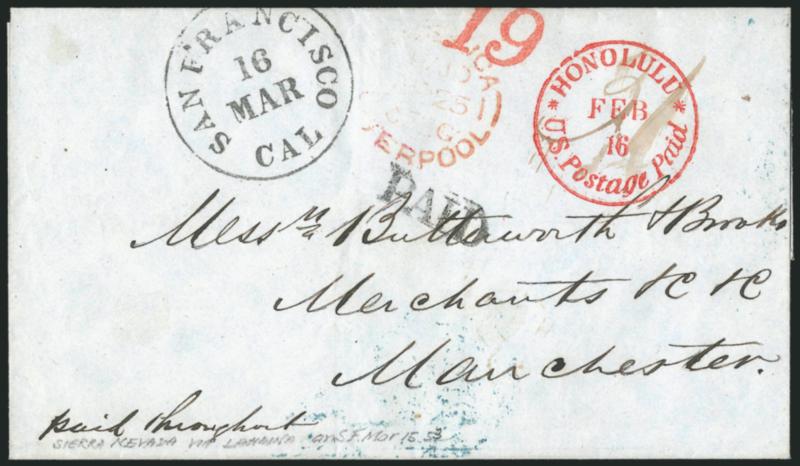 SAN FRANCISCO
16
MAR
CAL
19
25
LIVERPOOL
PAID
HONOLULU
FEB
16
U.S. Postage Paid
Messrs Butterworth & Brooks
Merchants &c &c
Manchester.
paid throughout
SIERRA NEVADA VIA LAHAINA ar S.F. Mar 15 53